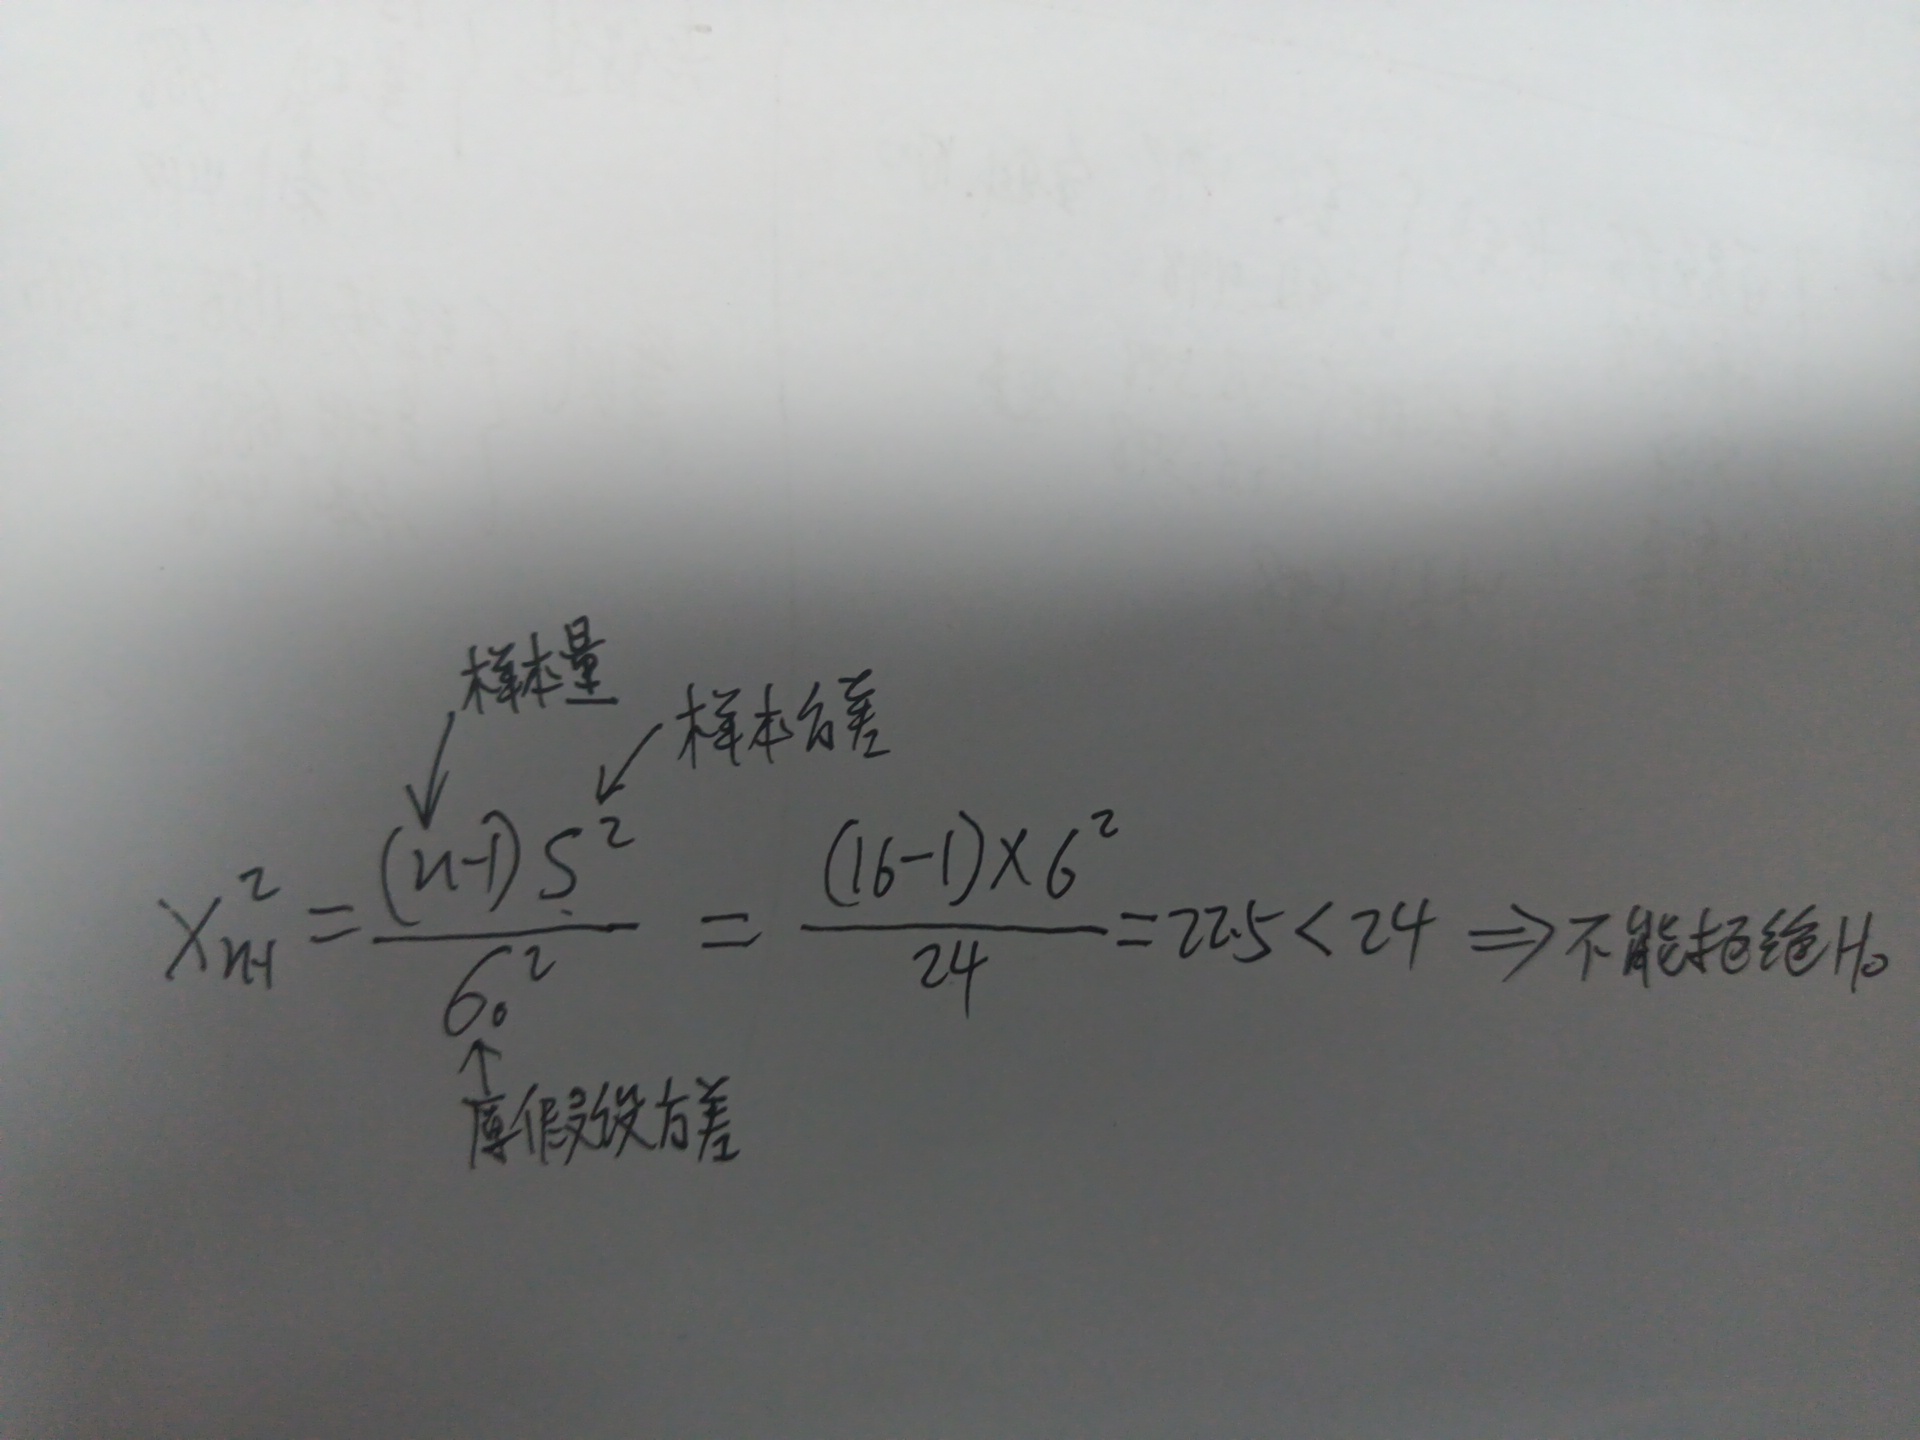 样本量
样本方差
X²n-1 = (n-1)S² / σ₀² = (16-1)×6² / 24 = 22.5 < 24 ⇒ 不能拒绝H₀
原假设方差